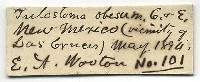 Tulostoma obesum, C. & E.
New Mexico (vicinity of
Las Cruces) May, 1894.
E. O. Wooton No. 101